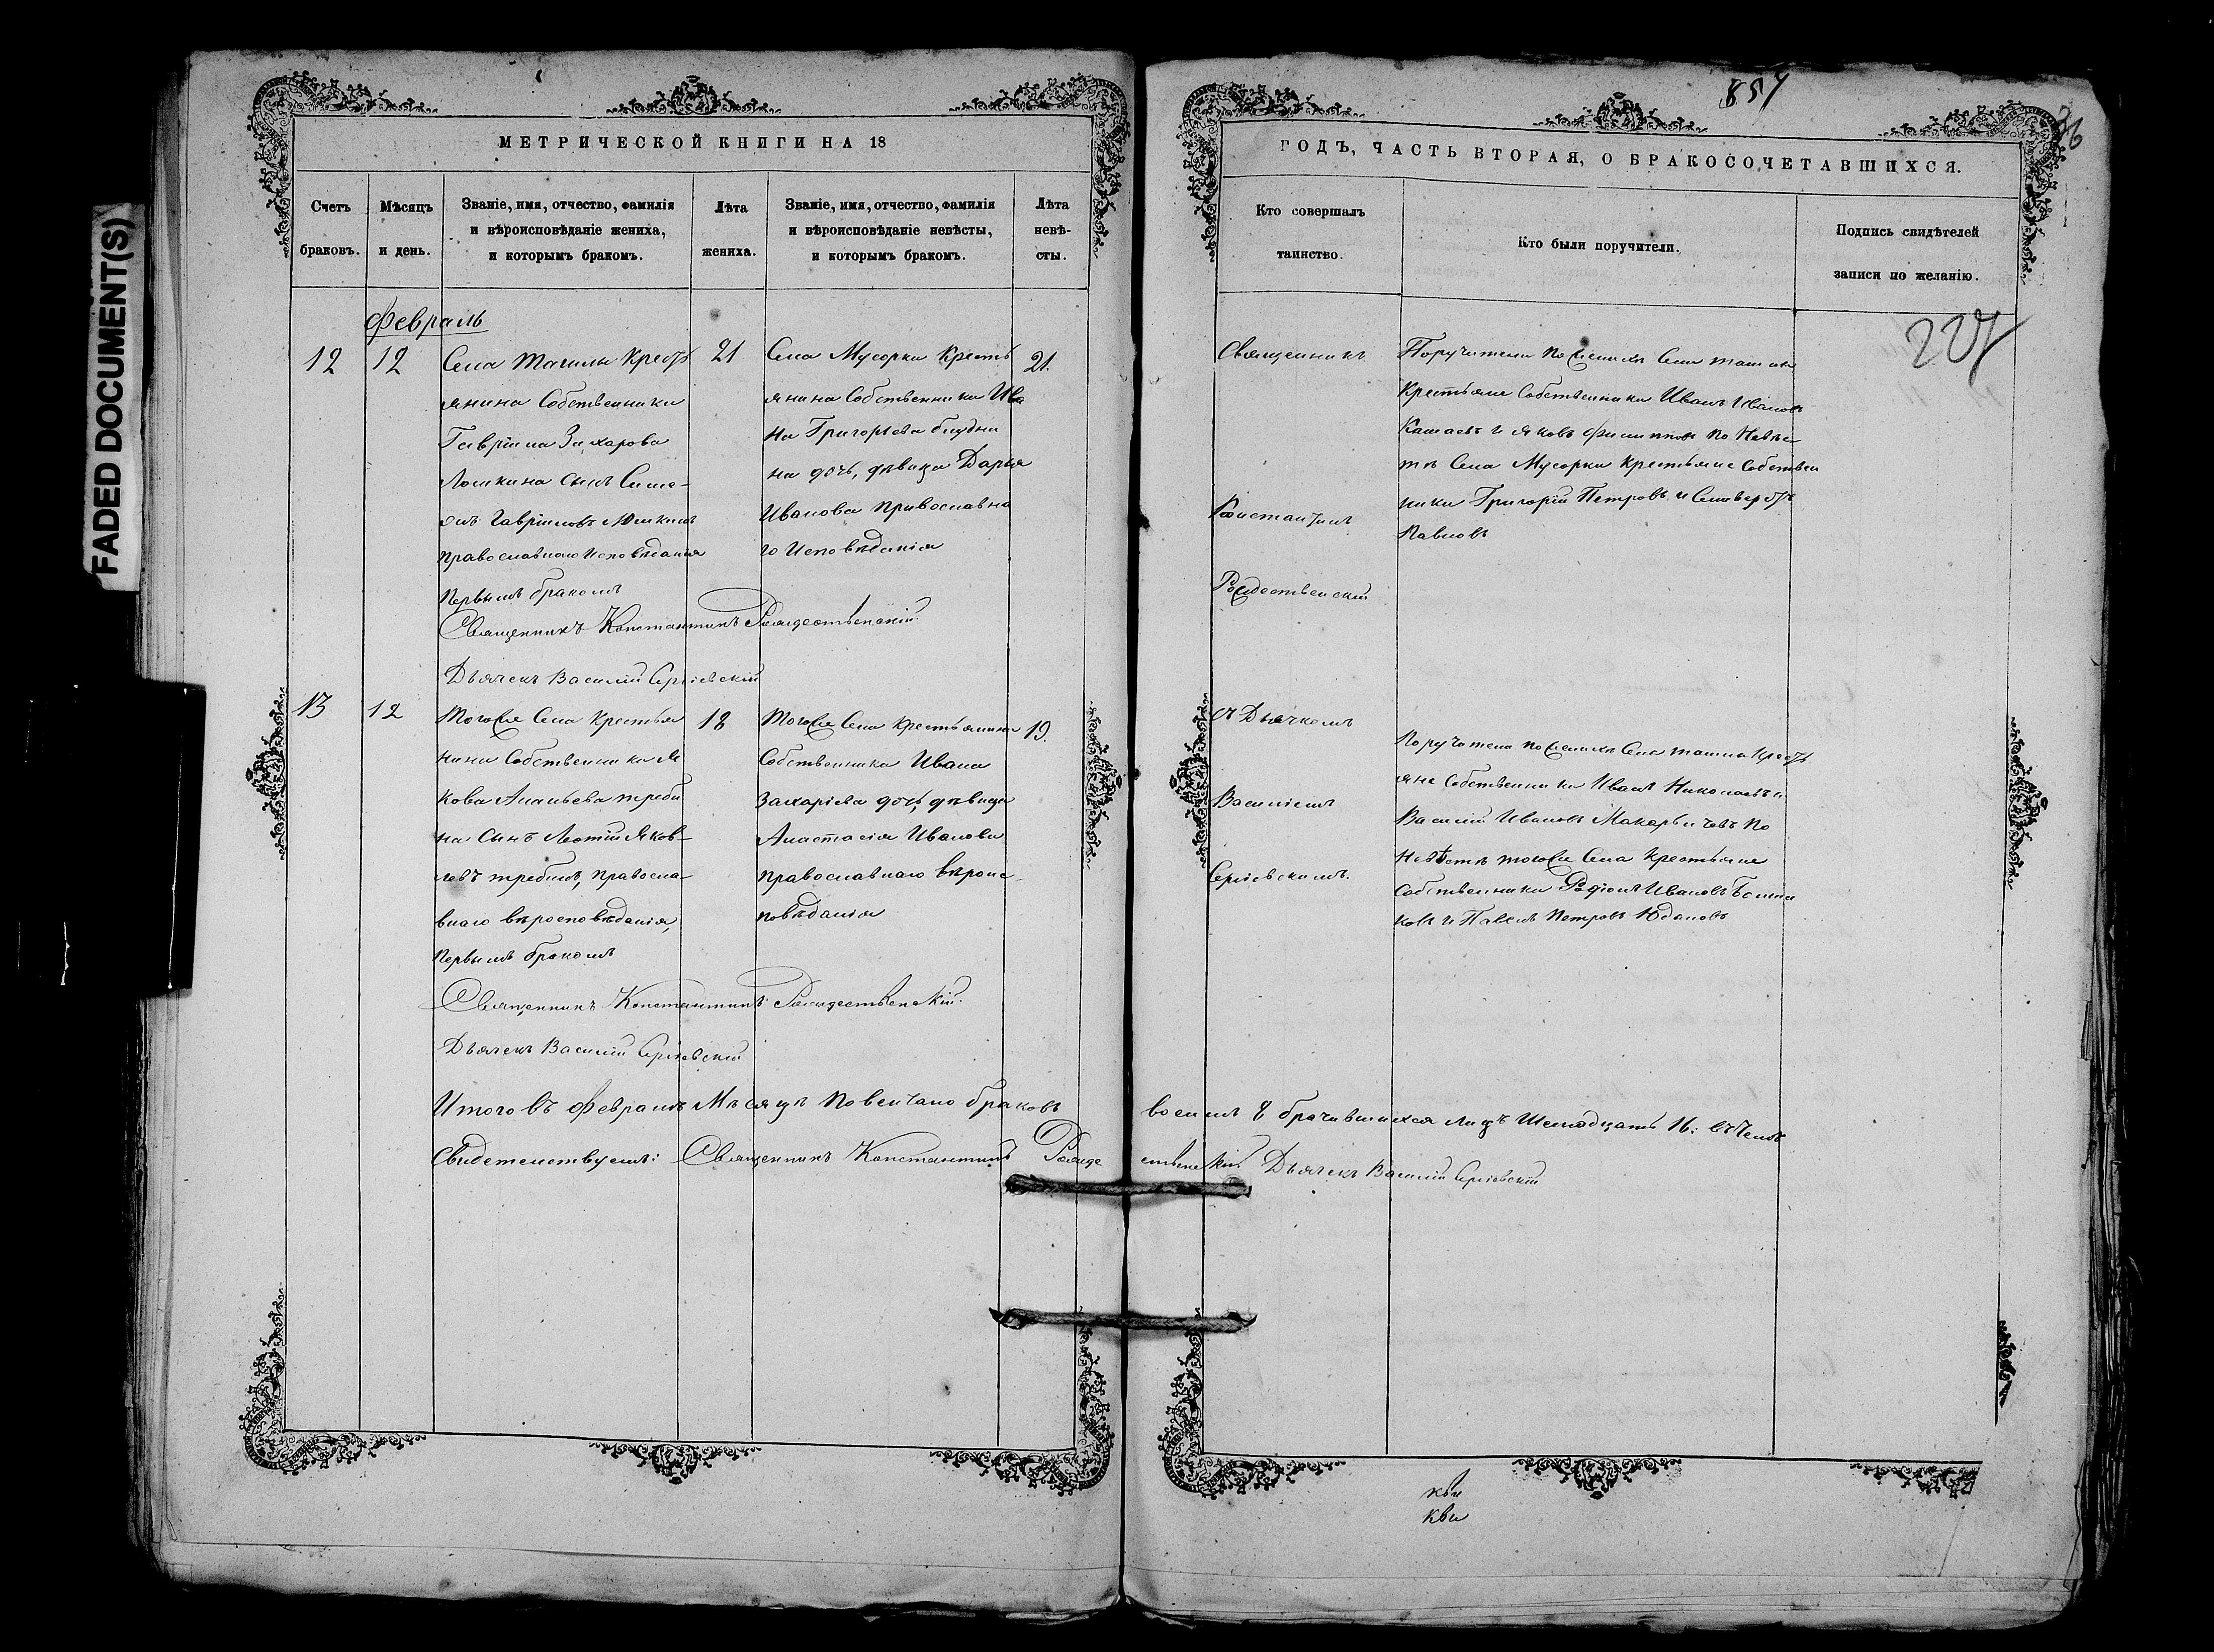 FADED DOCUMENT(S)
МЕТРИЧЕСКОЙ КНИГИ НА 18
Счетъ
браковъ.
Мѣсяцъ
и день.
Званіе, имя, отчество, фамилія
и вѣроисповѣданіе жениха,
и которымъ бракомъ.
Лѣта
жениха.
Званіе, имя, отчество, фамилія
и вѣроисповѣданіе невѣсты,
и которымъ бракомъ.
Лѣта
невѣ-
сты.
Февраль
12
12
Села Ташлы Крестъ
янина Собственника
Гавріила Захарова
сынъ Симе-
онъ Гавріиловъ
православнаго Исповѣданія
первымъ бракомъ
21
Села Мусорки Кресть
янина Собственника Ива
на Григорьева блудни
на дочь, дѣвица Дарья
Иванова православна
го Исповѣданія
21.
Священникъ Константинъ Рождественскій.
Дьячекъ Василій Сергіевскій
13
12
Тогоже Села Крестья
нина Собственника Я
кова Ананьева треби
на Сынъ Яков-
левъ требинъ, правосла-
внаго вѣроисповѣданія,
первымъ бракомъ
18
Тогоже Села Крестьянина
Собственника Ивана
Захаріева дочь, дѣвица
Анастасія Иванова
православнаго вѣроис
повѣданія
19.
Священникъ Константинъ Рождественскій.
Дьячекъ Василій Сергіевскій
Итого въ Февралѣ Мѣсяцѣ повенчано браковъ
Свидетельствуемъ: Священникъ Константинъ Рожде
857
36
ГОДЪ, ЧАСТЬ ВТОРАЯ, О БРАКОСОЧЕТАВШИХСЯ.
Кто совершалъ
таинство.
Кто были поручители.
Подпись свидѣтелей
записи по желанію.
227
Священникъ
Константинъ
Рождественскій
съ Дьячкомъ
Василіемъ
Сергіевскимъ.
Поручители по женихѣ Села Ташлы
Крестьяне Собственники Иванъ Ивановъ
и Яковъ Филиповъ по Невѣс
тѣ Села Мусорки Крестьяне Собствен
ники Григорій Петровъ и Селиверстъ
Павловъ
Поручители по женихѣ Села Ташла Кресть
яне Собственники Иванъ Николаевъ и
Василій Ивановъ Макарычевъ по
Невѣстѣ тогоже Села Крестьяне
Собственники Родіонъ Ивановъ
ковъ и Павелъ Петровъ Юдановъ
восемь 8 брачившихся лицъ Шестнадцать 16: въ чемъ
ственскій. Дьячекъ Василій Сергіевскій